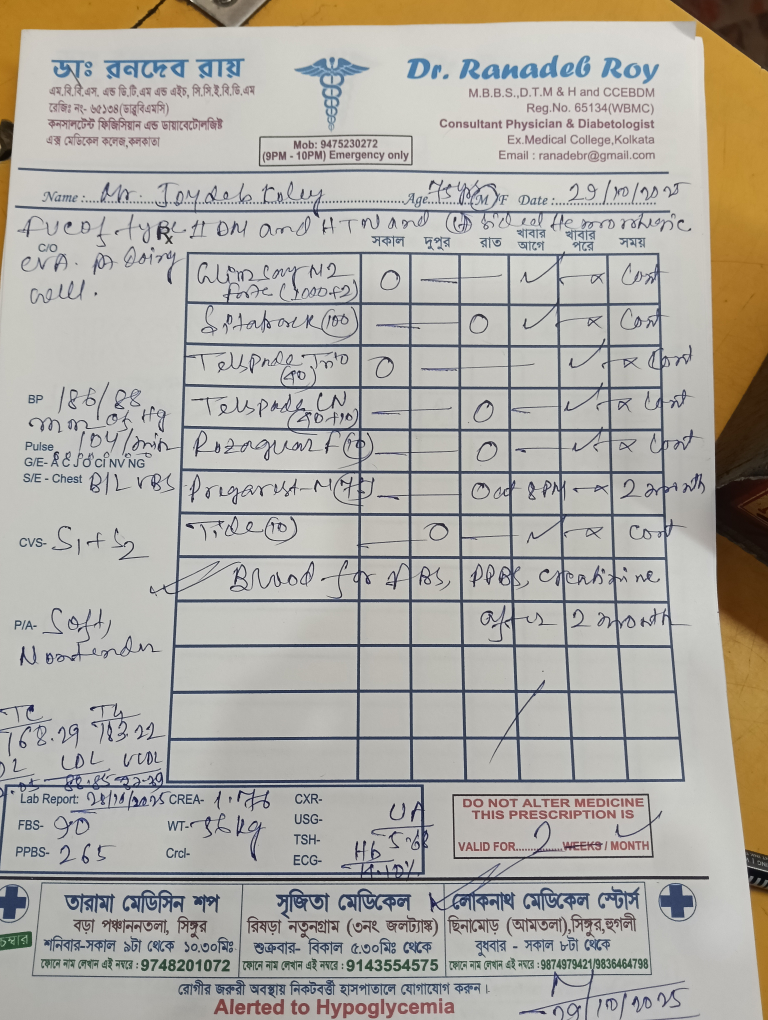 ডাঃ রনদেব রায়
এম.বি.বি.এস. এন্ড ডি.টি.এম এন্ড এইচ, সি.সি.ই.বি.ডি.এম
রেজিঃ নং- ৬৫১৩৪(ডাব্লুবিএমসি)
কনসালটেন্ট ফিজিসিয়ান এন্ড ডায়াবেটোলজিষ্ট
এক্স মেডিকেল কলেজ,কলকাতা
Mob: 9475230272
(9PM - 10PM) Emergency only
Dr. Ranadeb Roy
M.B.B.S.,D.T.M & H and CCEBDM
Reg.No. 65134(WBMC)
Consultant Physician & Diabetologist
Ex.Medical College,Kolkata
Email : ranadebr@gmail.com
Name : Mr. Joydeb Koley Age 75 yrs M/F Date : 29/10/2025
FUC of type II DM and HTN and Hemorrhagic
C/O Rx সকাল দুপুর রাত খাবার আগে খাবার পরে সময়
CVA. Pt Doing
well.
M2
forte (1000+2) Cont
(100) Cont
Trio
(40) Cont
LN
(40+10) Cont
F (10) Cont
M (75) at 8PM 2 month
Tide (10) Cont
Blood for FBS, PPBS, creatinine
after 2 month
BP 186/88
mm of Hg
Pulse 104/min
G/E- A C J O CI NV NG
S/E - Chest B/L VBS
CVS- S1+S2
P/A- Soft,
Nontender
TC TG
168.29 183.22
LDL VLDL
Lab Report: 28/10/2025 CREA- 1.76 CXR-
FBS- 90 WT- 56kg USG- UA
TSH- 5.68
PPBS- 265 Crcl- ECG- Hb
DO NOT ALTER MEDICINE
THIS PRESCRIPTION IS
VALID FOR 2 WEEKS / MONTH
চেম্বার
তারামা মেডিসিন শপ
বড়া পঞ্চাননতলা, সিঙ্গুর
শনিবার-সকাল ৯টা থেকে ১০.৩০মিঃ
ফোনে নাম লেখান এই নম্বরে : 9748201072
সৃজিতা মেডিকেল
রিষড়া নতুনগ্রাম (৩নং জলট্যাঙ্ক)
শুক্রবার- বিকাল ৫.৩০মিঃ থেকে
ফোনে নাম লেখান এই নম্বরে : 9143554575
লোকনাথ মেডিকেল স্টোর্স
ছিনামোড় (আমতলা),সিঙ্গুর,হুগলী
বুধবার - সকাল ৮টা থেকে
ফোনে নাম লেখান এই নম্বরে : 9874979421/9836464798
রোগীর জরুরী অবস্থায় নিকটবর্ত্তী হাসপাতালে যোগাযোগ করুন।
Alerted to Hypoglycemia
29/10/2025